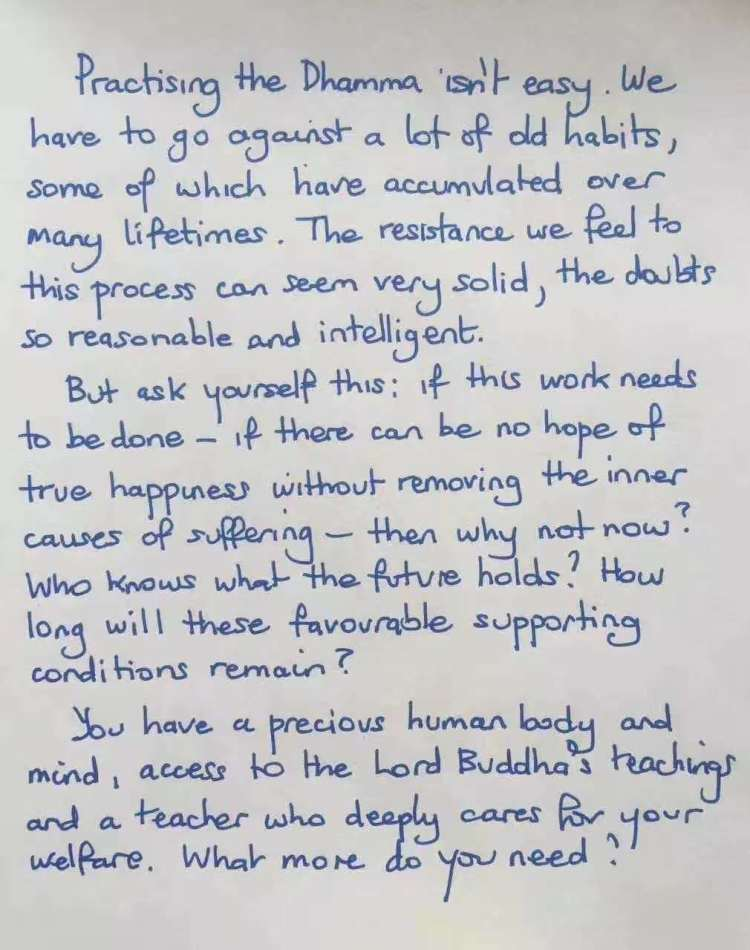 Practising the Dhamma isn't easy. We
have to go against a lot of old habits,
some of which have accumulated over
many lifetimes. The resistance we feel to
this process can seem very solid, the doubts
so reasonable and intelligent.
But ask yourself this: if this work needs
to be done – if there can be no hope of
true happiness without removing the inner
causes of suffering – then why not now?
Who knows what the future holds? How
long will these favourable supporting
conditions remain?
You have a precious human body and
mind, access to the Lord Buddha's teachings
and a teacher who deeply cares for your
welfare. What more do you need?